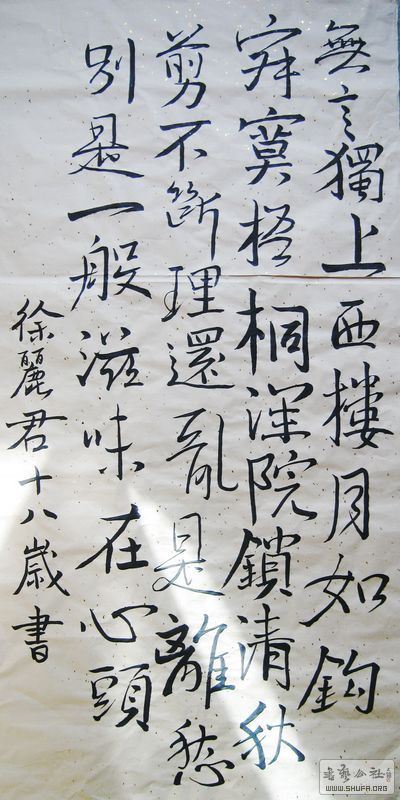 無言獨上西樓月如鈎
寂寞梧桐深院鎖清秋
剪不斷理還亂是離愁
別是一般滋味在心頭
徐麗君十八歲書
書藝公社
WWW.SHUFA.ORG